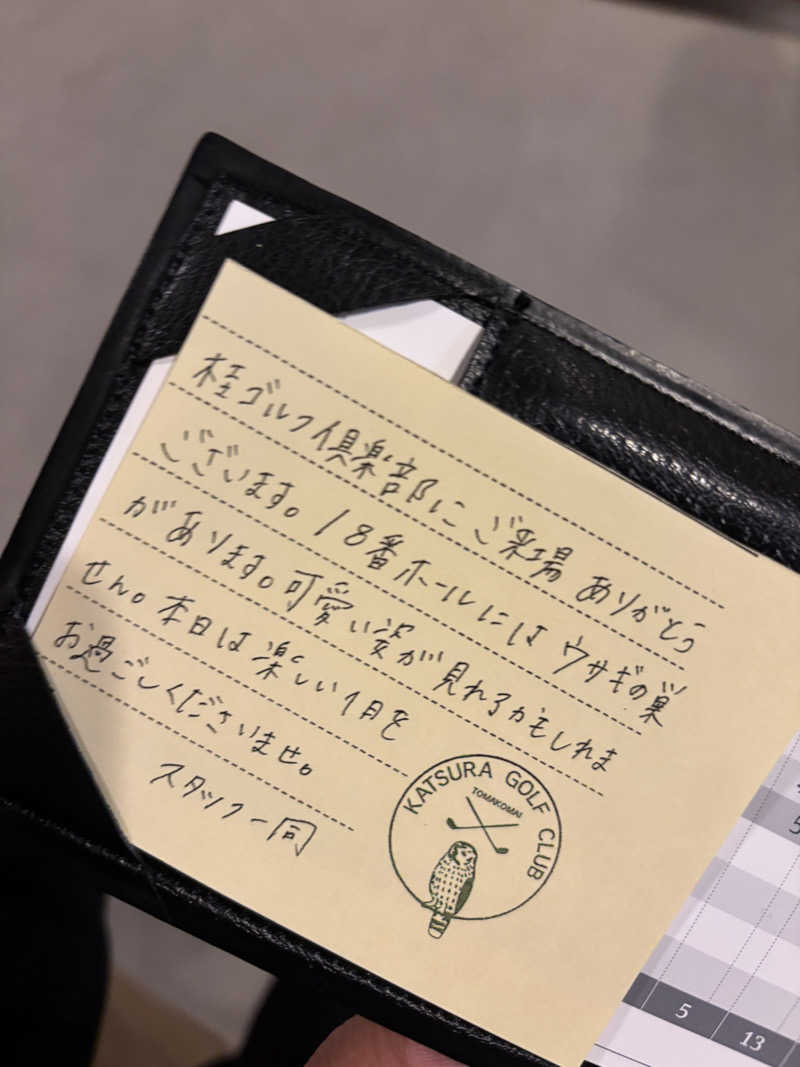 桂ゴルフ倶楽部にご来場 ありがとう
ございます。18番ホールには ウサギの巣
があります。可愛い姿が見れるかもしれま
せん。本日は楽しい1日を
お過ごしくださいませ。
スタッフ一同
KATSURA GOLF CLUB
TOMAKOMAI
5
5
13